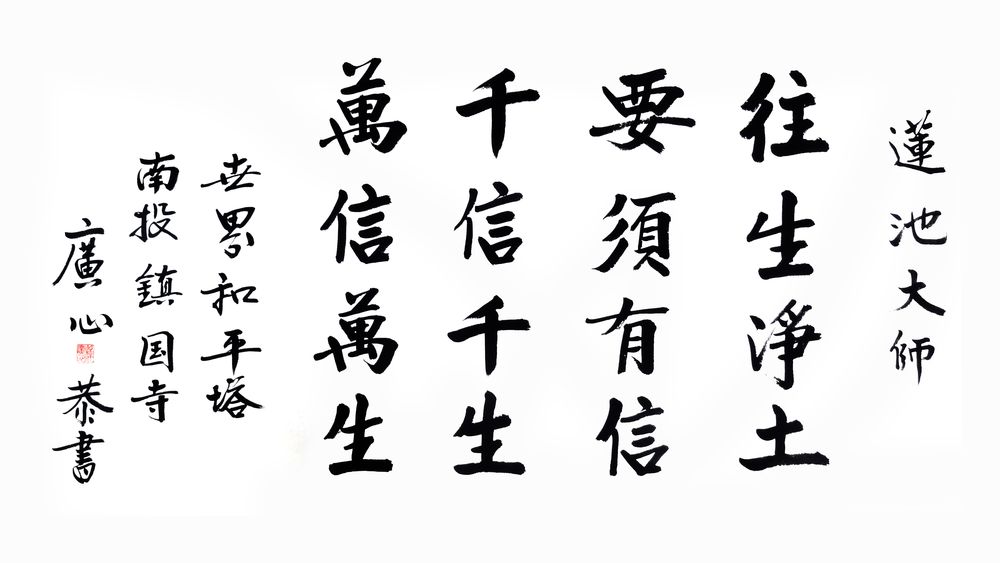 蓮池大師
往生淨土
要須有信
千信千生
萬信萬生
世界和平塔
南投鎮国寺
廣心恭書